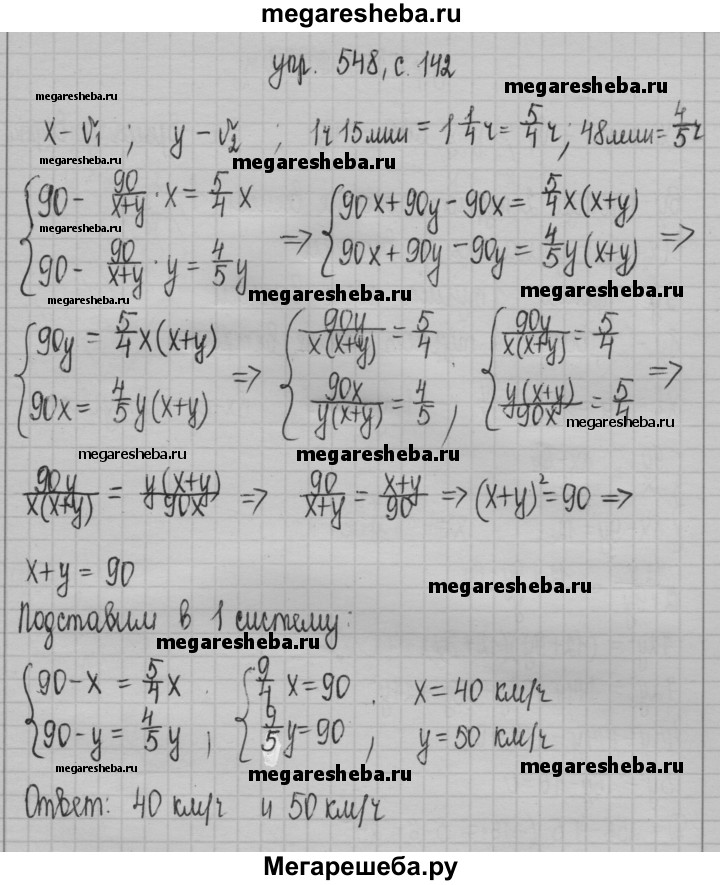 megaresheba.ru
упр. 548, с. 142
megaresheba.ru
megaresheba.ru
x – v₁ ; y – v₂ ; 1ч 15мин = 1 1/4 ч = 5/4 ч ; 48мин = 4/5 ч
megaresheba.ru
{ 90 – 90/(x+y) · x = 5/4 x ⇒ { 90x + 90y – 90x = 5/4 x(x+y)
megaresheba.ru
{ 90 – 90/(x+y) · y = 4/5 y { 90x + 90y – 90y = 4/5 y(x+y) ⇒
megaresheba.ru
megaresheba.ru
megaresheba.ru
{ 90y = 5/4 x(x+y) ⇒ { 90y/(x(x+y)) = 5/4 { 90y/(x(x+y)) = 5/4 ⇒
{ 90x = 4/5 y(x+y) { 90x/(y(x+y)) = 4/5 ; { y(x+y)/90x = 5/4
megaresheba.ru
megaresheba.ru
megaresheba.ru
90y/(x(x+y)) = y(x+y)/90x ⇒ 90/(x+y) = (x+y)/90 ⇒ (x+y)² = 90 ⇒
x + y = 90
megaresheba.ru
Подставим в 1 систему:
megaresheba.ru
{ 90 – x = 5/4 x { 9/4 x = 90 . x = 40 км/ч
{ 90 – y = 4/5 y ; { 9/5 y = 90 , y = 50 км/ч
megaresheba.ru
megaresheba.ru
megaresheba.ru
Ответ: 40 км/ч и 50 км/ч
Мегарешеба.ру